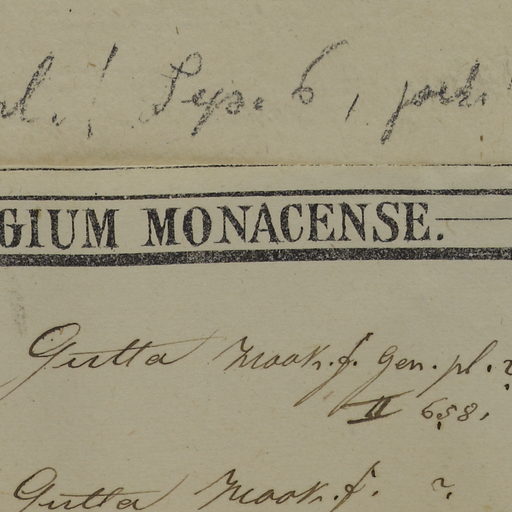 Sep. 6,
GIUM MONACENSE.
Gutta Hook. f. Gen. pl. ?
II 658.
Gutta Hook. f. ?